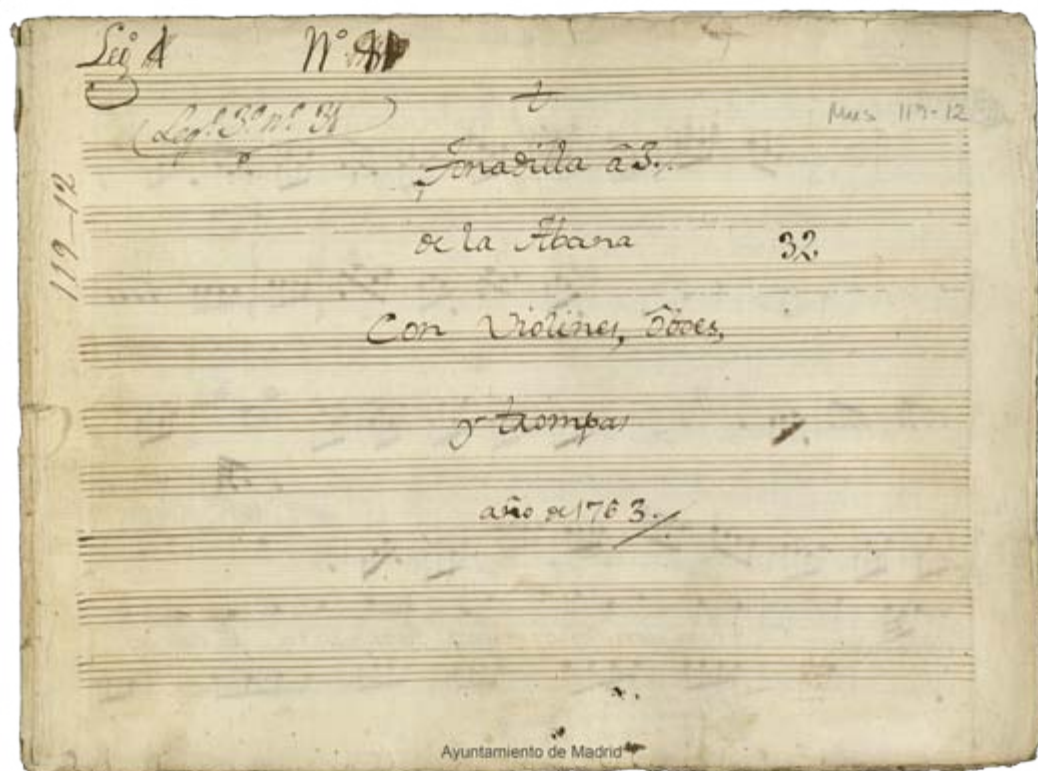 Leg.º 1 N.º
(Leg.º 3.º n.º 31)
Mus 119-12
119-12
Tonadilla â 3.
de la Abana
32
Con Violines, Oboes,
y trompas
año de 1763.
Ayuntamiento de Madrid